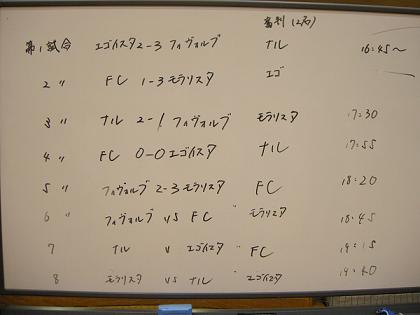 審判(2名)
第1試合 エゴイスタ 2-3 フォヴォルブ ナル 16:45～
2 〃 FC 1-3 モラリスタ エゴ
3 〃 ナル 2-1 フォヴォルブ モラリスタ 17:30
4 〃 FC 0-0 エゴイスタ ナル 17:55
5 〃 フォヴォルブ 2-3 モラリスタ FC 18:20
6 〃 フォヴォルブ VS FC 〃 モラリスタ 18:45
7 ナル V エゴイスタ 〃 FC 19:15
8 モラリスタ VS ナル 〃 エゴイスタ 19:40